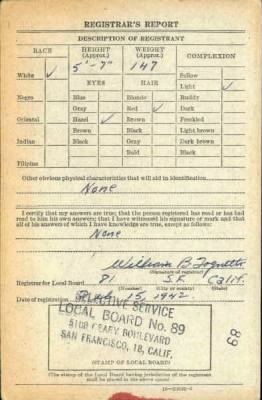 REGISTRAR'S REPORT
DESCRIPTION OF REGISTRANT
RACE HEIGHT (Approx.) WEIGHT (Approx.) COMPLEXION
White ✓ 5'-7" 147 Sallow
EYES HAIR Light ✓
Negro Blue Blonde Ruddy
Gray Red ✓ Dark
Oriental Hazel ✓ Brown Freckled
Brown Black Light brown
Indian Black Gray Dark brown
Bald Black
Filipino
Other obvious physical characteristics that will aid in identification
None
I certify that my answers are true; that the person registered has read or has had
read to him his own answers; that I have witnessed his signature or mark and that
all of his answers of which I have knowledge are true, except as follows:
None
William B
(Signature of registrar)
Registrar for Local Board 81 S.F. Calif.
(Number) (City or county) (State)
Date of registration Feb. 15, 1942
SELECTIVE SERVICE
LOCAL BOARD No. 89
5108 GEARY BOULEVARD
SAN FRANCISCO, 18, CALIF.
89
(STAMP OF LOCAL BOARD)
(The stamp of the Local Board having jurisdiction of the registrant
shall be placed in the above space)